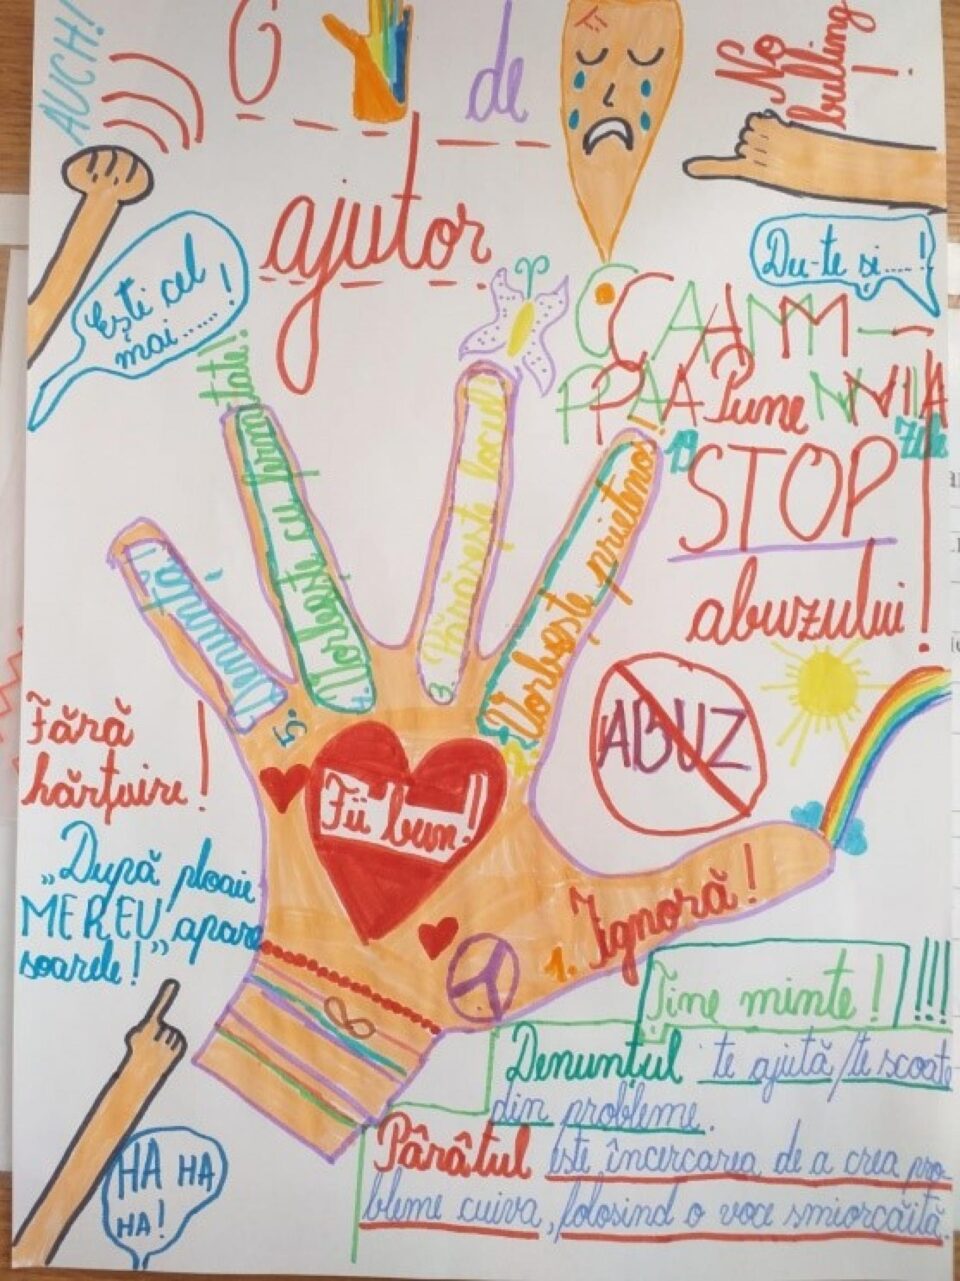 AUCH!
O
de
ajutor
No
bulling!
Ești cel
mai......!
Du-te și.....!
CAM-
PANIA
19
zile
Pune
STOP
abuzului!
ABUZ
5. Denunță!
4. Vorbește cu fermitate!
3. Părăsește locul
2. Vorbește prietenos!
1. Ignoră!
Fii bun!
Fără
hărțuire!
„După ploaie
MEREU apare
soarele!”
HA HA
HA!
Ține minte! !!!
Denunțul te ajută/te scoate
din probleme.
Pârâtul este încercarea de a crea pro-
bleme cuiva, folosind o voce smiorcăită.